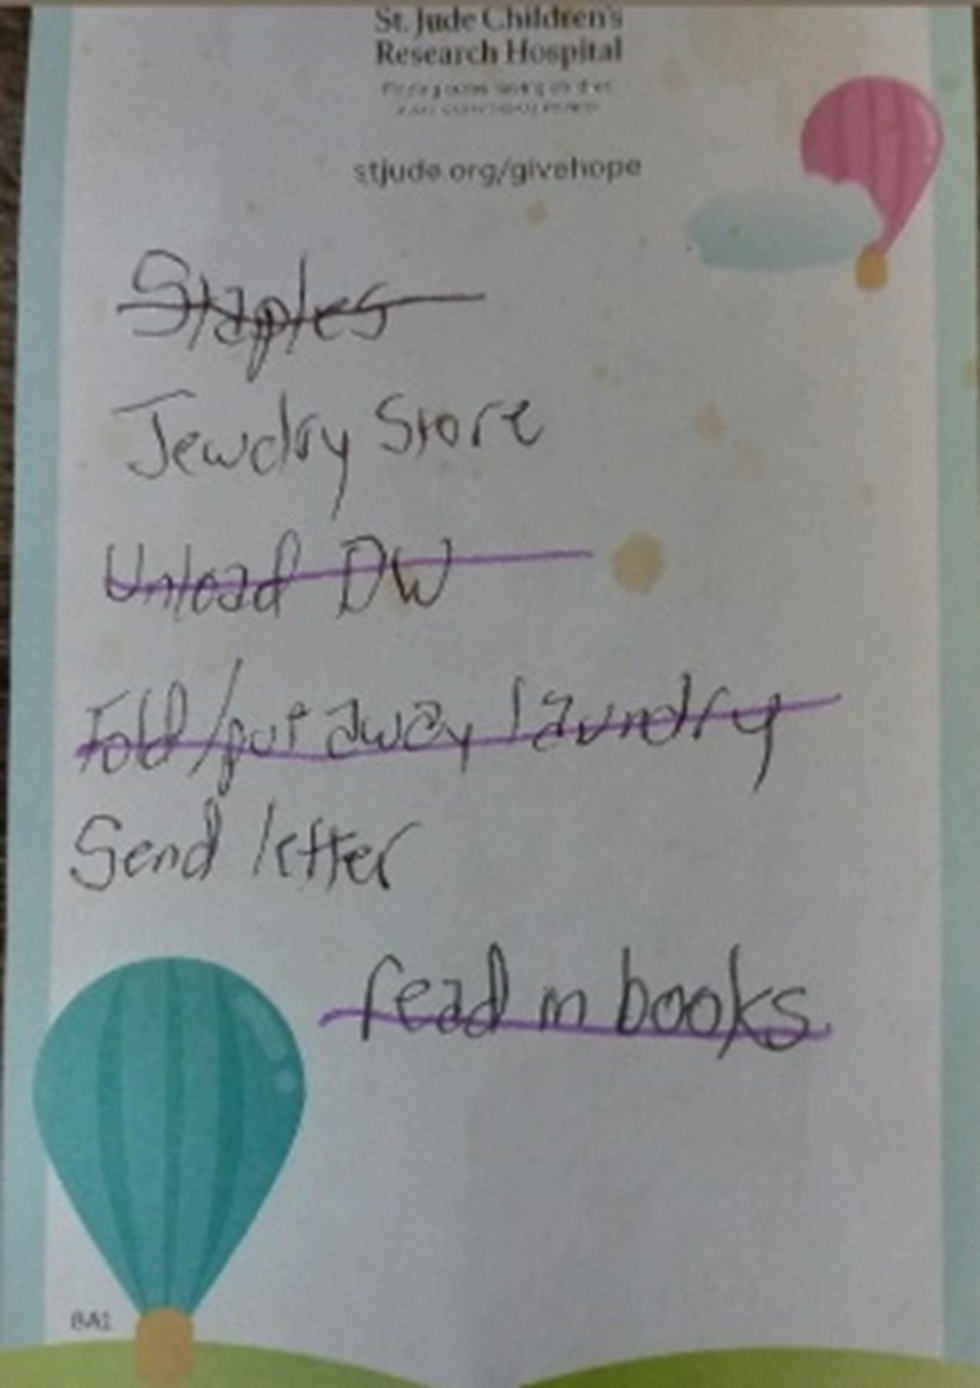 St. Jude Children's
Research Hospital
stjude.org/givehope
Staples
Jewelry Store
Unload DW
Fold/put away laundry
Send letter
read in books
BA1